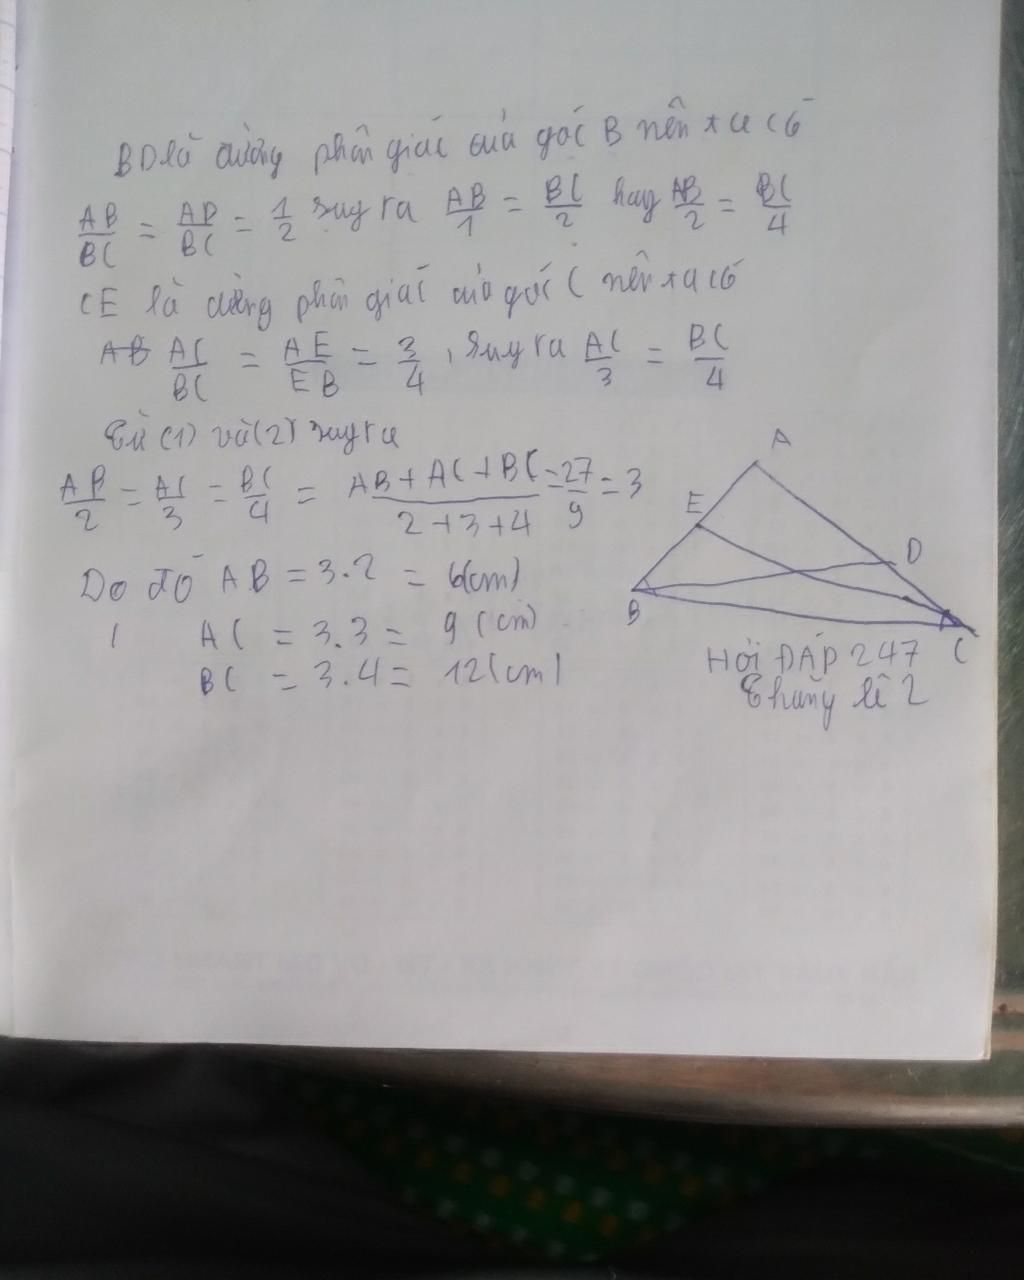 BD là đường phân giác của góc B nên ta có
AB/BC = AD/BC = 1/2 suy ra AB/1 = BC/2 hay AB/2 = BC/4
CE là đường phân giác của góc C nên ta có
AB AC/BC = AE/EB = 3/4, suy ra AC/3 = BC/4
Từ (1) và (2) suy ra
AB/2 = AC/3 = BC/4 = AB+AC+BC/2+3+4 = 27/9 = 3
Do đó AB = 3.2 = 6(cm)
AC = 3.3 = 9(cm)
BC = 3.4 = 12(cm)
A
E
D
B
C
HỎI ĐÁP 247